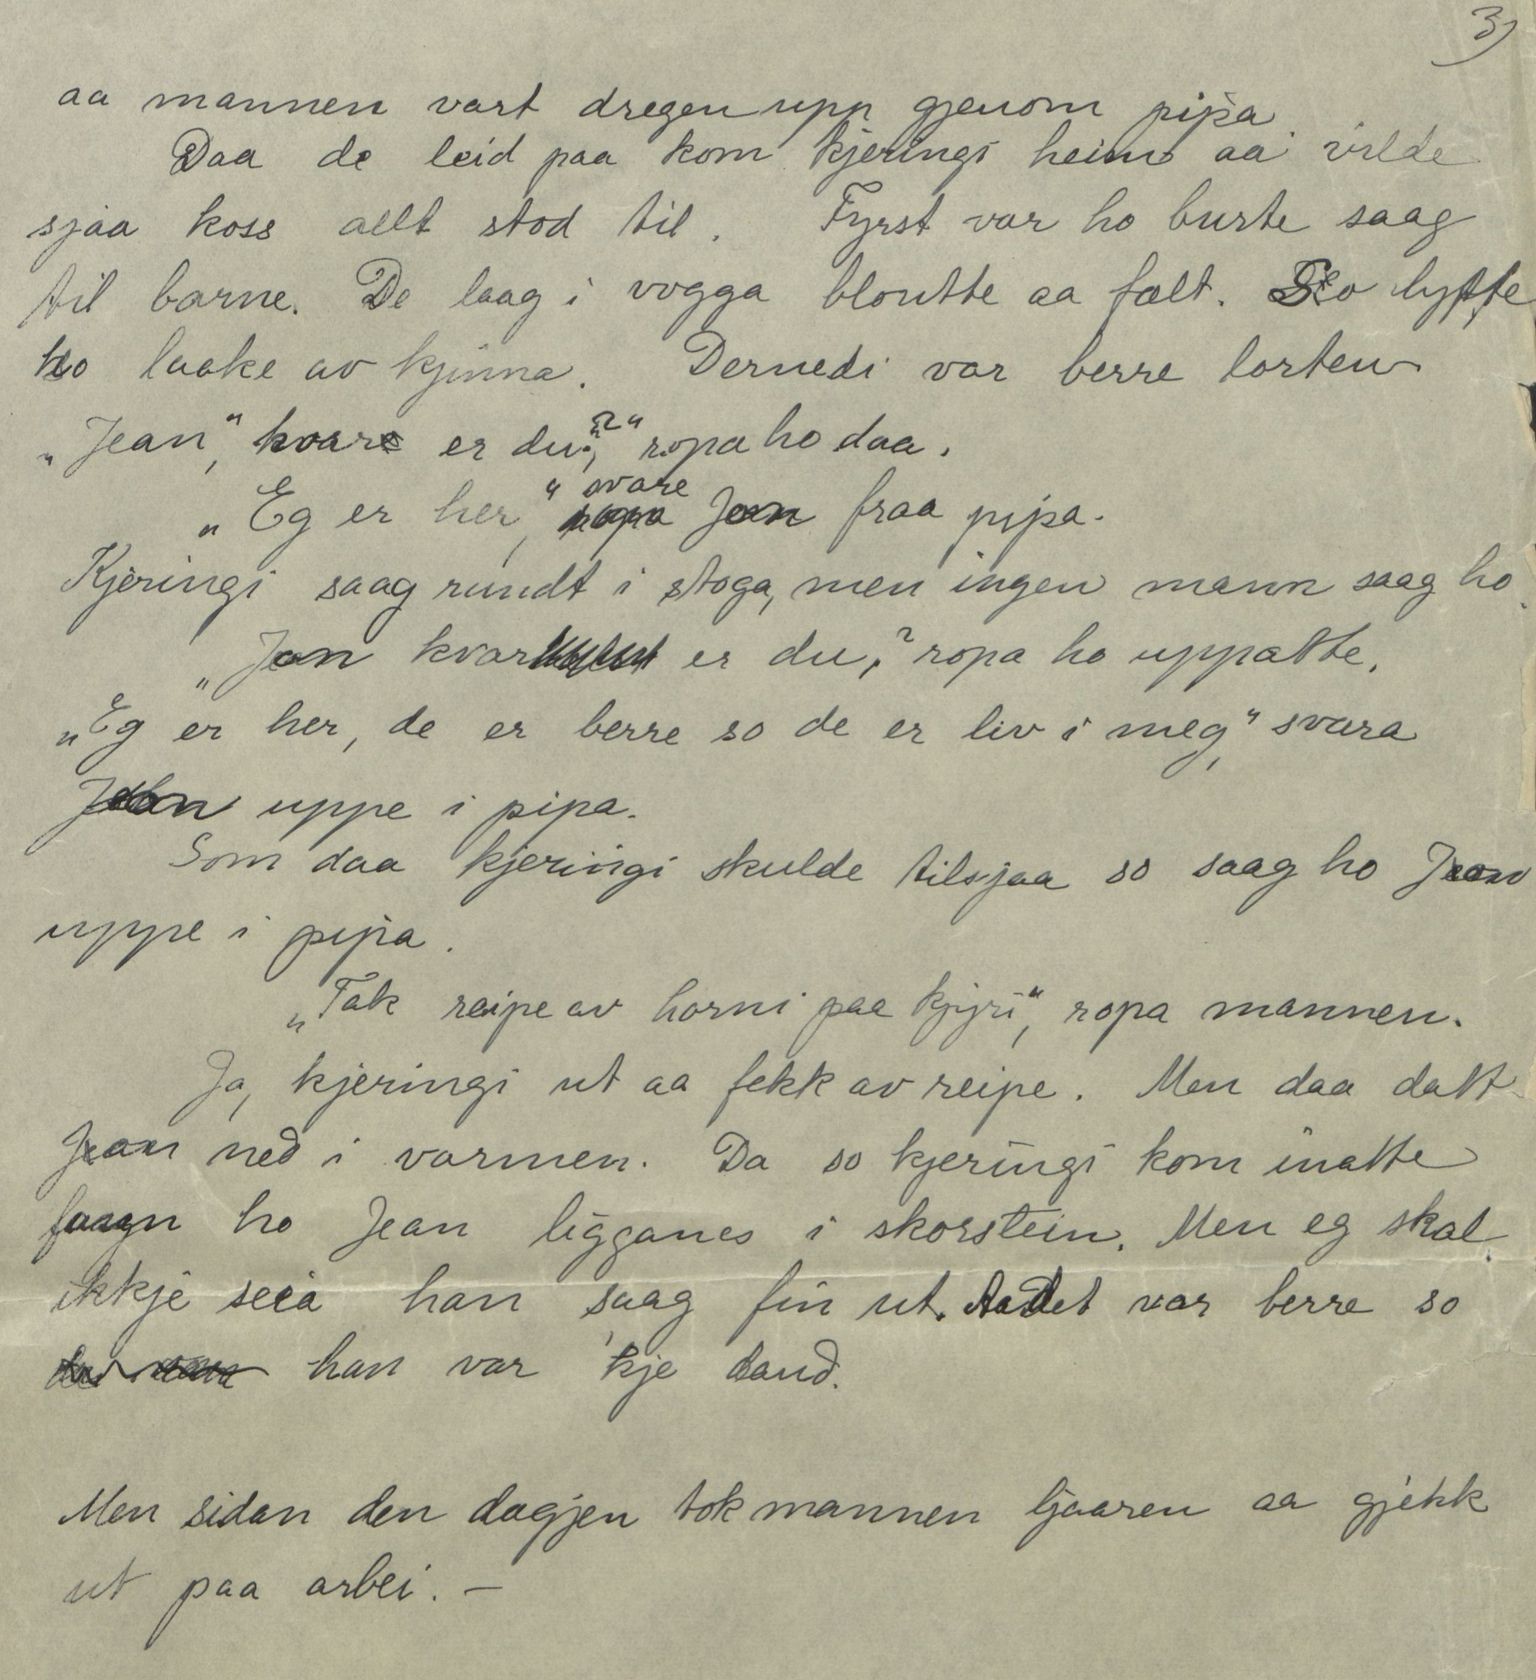 3)
aa mannen vart dregen upp gjenom pipa
Daa de leid paa kom kjeringi heim aa vilde
sjaa koss allt stod til. Fyrst var ho burte saag
til barne. De laag i vogga bloutte aa falt. So lyfte
ho laake av kjinna. Dernedi var berre lorten
„Jean“, kvar er du?“ ropa ho daa.
„Eg er her,“ svare Jon fraa pipa.
Kjeringi saag rundt i stoga, men ingen mann saag ho.
„Jon kvar er du,? ropa ho uppatte.
„Eg er her, de er berre so de er liv i meg,“ svara
Jon uppe i pipa.
Som daa kjeringi skulde tilsjaa so saag ho Jean
uppe i pipa.
„Tak reipe av horni paa kjyri“, ropa mannen.
Ja, kjeringi ut aa fekk av reipe. Men daa datt
Jean ned i varmen. Da so kjeringi kom inatte
faagn ho Jean ligganes i skorstein. Men eg skal
ikkje seia han saag fin ut. Aa det var berre so
han var 'kje daud.
Men sidan den dagjen tok mannen ljaaren aa gjekk
ut paa arbei. —